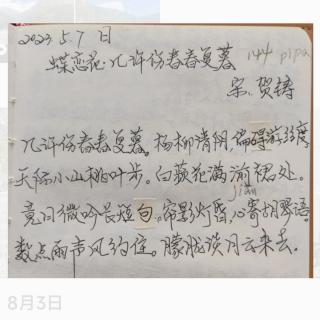 2023.5.7日
蝶恋花·几许伤春春复暮
144 pipa
宋.贺铸
几许伤春春复暮。杨柳清阴,偏碍游丝度。
天际小山桃叶步。白蘋花满湔裙处。
jiān
竟日微吟长短句。帘影灯昏,心寄胡琴语。
数点雨声风约住。朦胧淡月云来去。
8月3日